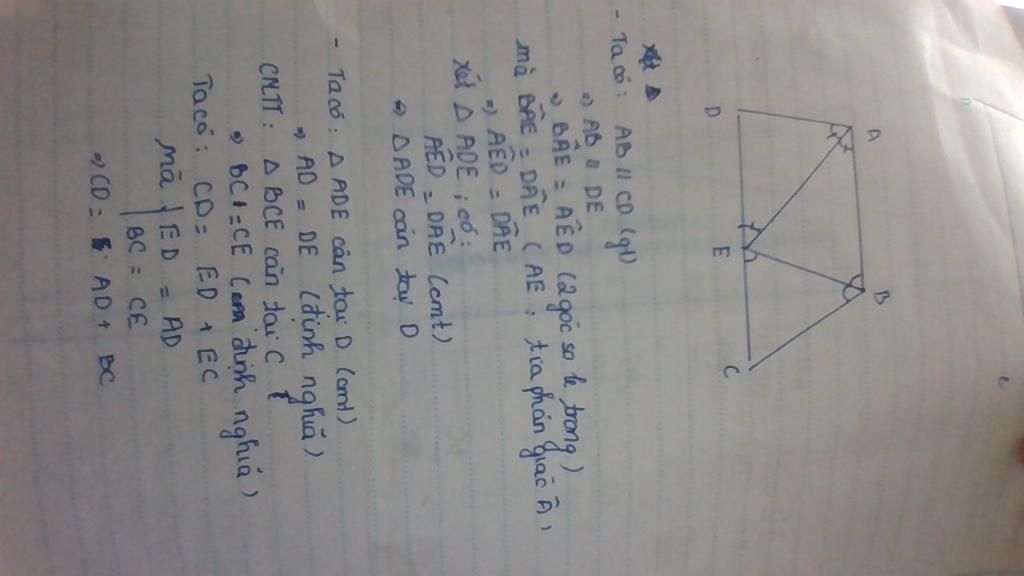 A
B
D
E
C
- Ta có: AB // CD (gt)
⇒ AB // DE
⇒ BÂE = AÊD (2 góc so le trong)
mà BÂE = DÂE (AE : tia phân giác Â)
⇒ AÊD = DÂE
xét Δ ADE ; có:
AÊD = DÂE (cmt)
⇒ Δ ADE cân tại D
- Ta có: Δ ADE cân tại D (cmt)
⇒ AD = DE (định nghĩa)
CMTT: Δ BCE cân tại C
⇒ BC = CE (định nghĩa)
Ta có: CD = ED + EC
mà { ED = AD
BC = CE
⇒ CD = AD + BC